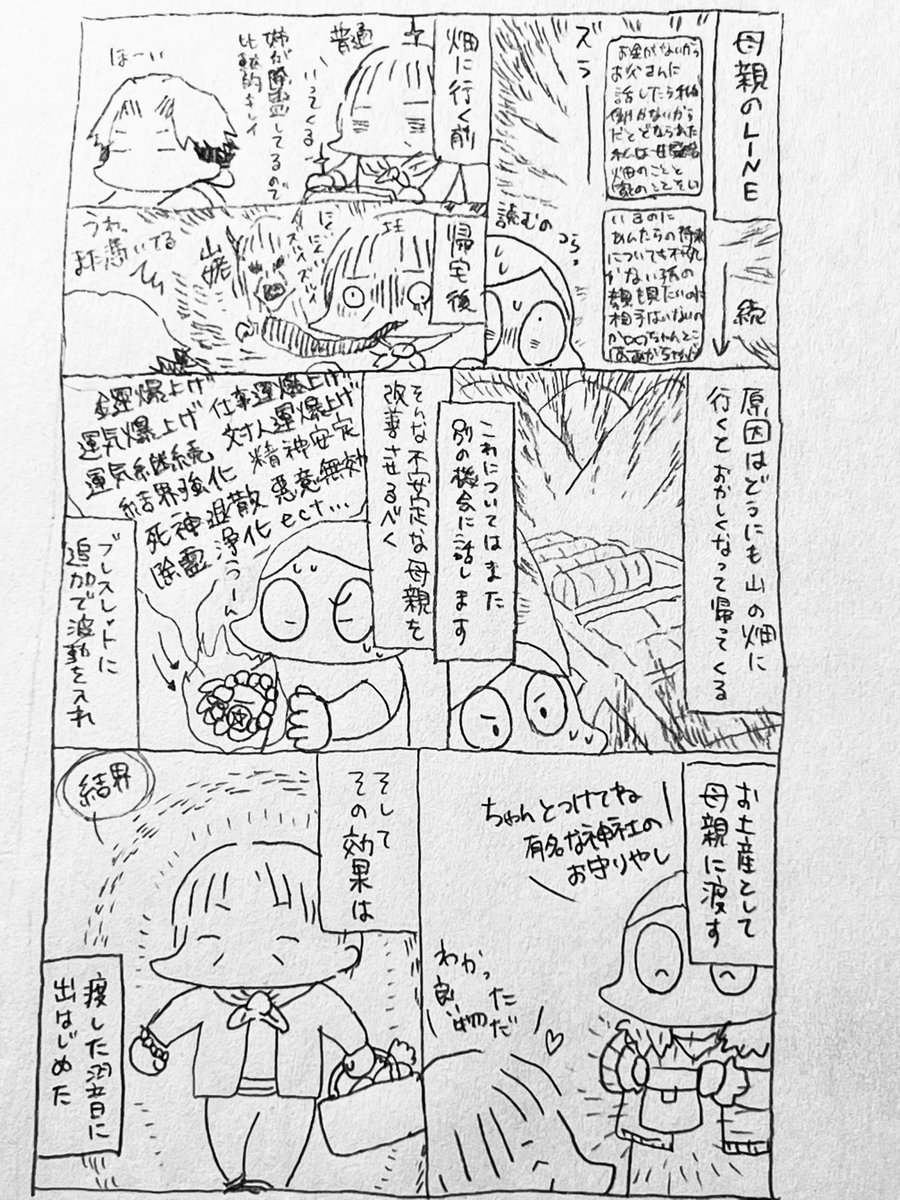 母親のLINE
続
お金がないから
お父さんに
話したら私ね
働かないから
だとどなられた
畑のことと
いるのに
あんたらの将来
についても不安だし
孫の
顔も見たいのに
相手はいないの
読むの
つらっ
ズラ
畑に行く前
普通
いってくる
姉が除霊してるので
比較的キレイ
ほーい
帰宅後
山姥
うわ。
また憑いてる
原因はどうにも山の畑に
行くとおかしくなって帰ってくる
これについてはまた
別の機会に話します
そんな不安定な母親を
改善させるべく
金運爆上げ
仕事運爆上げ
運気爆上げ
対人運爆上げ
運気継続
精神安定
結界強化
悪意無効
死神退散
除霊浄化ect...
うーん
ブレスレットに
追加で波動を入れ
お土産として
母親に渡す
ちゃんとつけてね
有名な神社の
お守りやし
わかった
良い物だ
そして
その効果は
結界
渡した翌日に
出はじめた